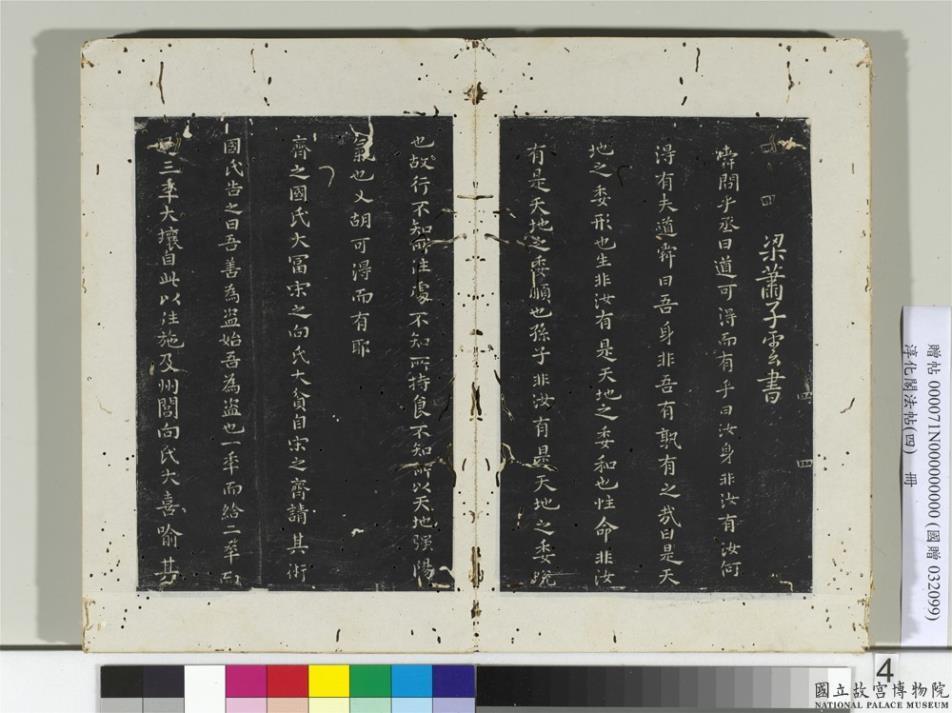 梁蕭子雲書
舜問乎丞曰道可得而有乎曰汝身非汝有汝何
得有夫道舜曰吾身非吾有孰有之哉曰是天
地之委形也生非汝有是天地之委和也性命非汝
有是天地之委順也孫子非汝有是天地之委蛻
也故行不知所往處不知所持食不知所以天地强陽
氣也又胡可得而有耶
齊之國氏大冨宋之向氏大貧自宋之齊請其術
國氏告之曰吾善為盜始吾為盜也一年而給二年而
三年大壤自此以往施及州閭向氏大喜喻其
四
四
四
贈帖 000071N000000000 (國贈 032099)
淳化閣法帖(四) 冊
4
國立故宮博物院
NATIONAL PALACE MUSEUM